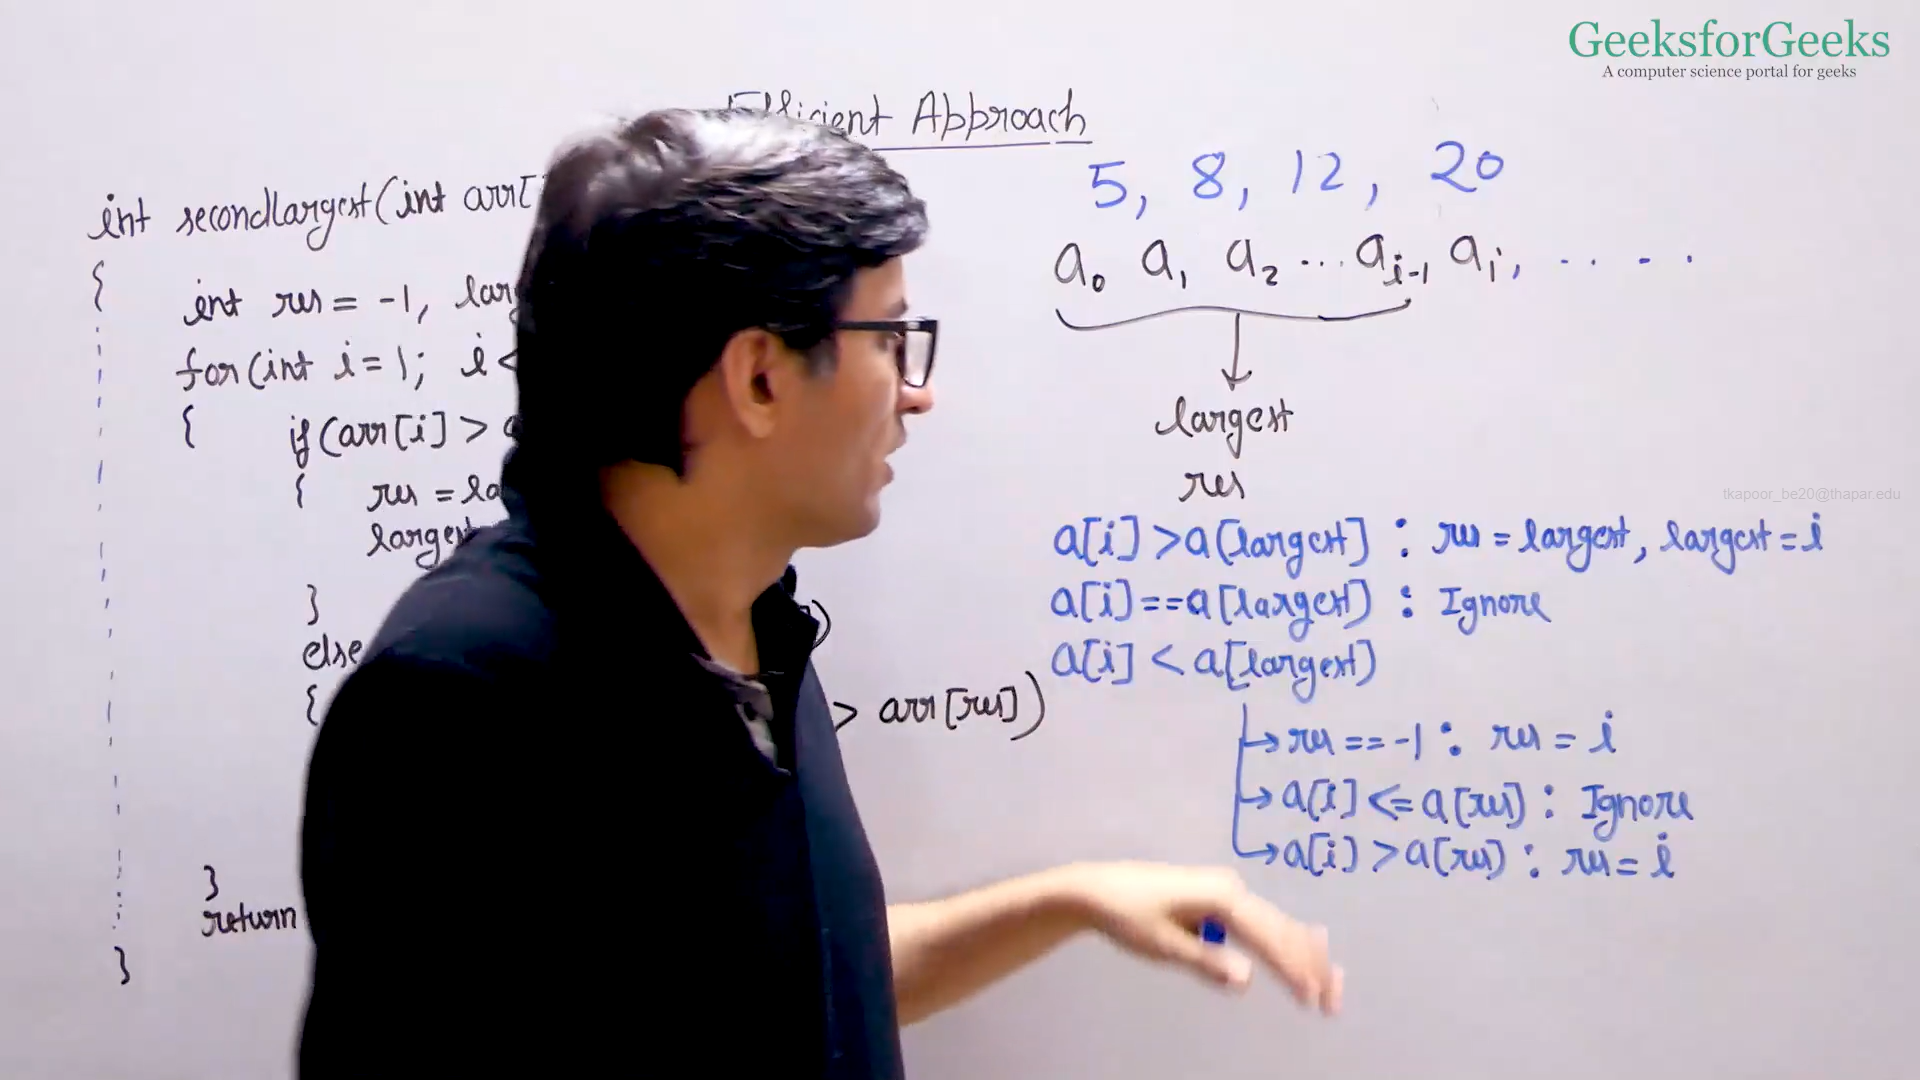 GeeksforGeeks
A computer science portal for geeks
Efficient Approach
int secondlargest(int arr[
{
int res = -1, larg
for(int i=1; i <
{ if(arr[i] >
{ res = la
largest
}
else
{ > arr[res])
}
return
}
5, 8, 12, 20
a0 a1 a2 ... ai-1 ai, . . - .
largest
res
tkapoor_be20@thapar.edu
a[i] > a[largest] : res = largest, largest = i
a[i] == a[largest] : Ignore
a[i] < a[largest]
→ res == -1 : res = i
→ a[i] <= a[res] : Ignore
→ a[i] > a[res] : res = i